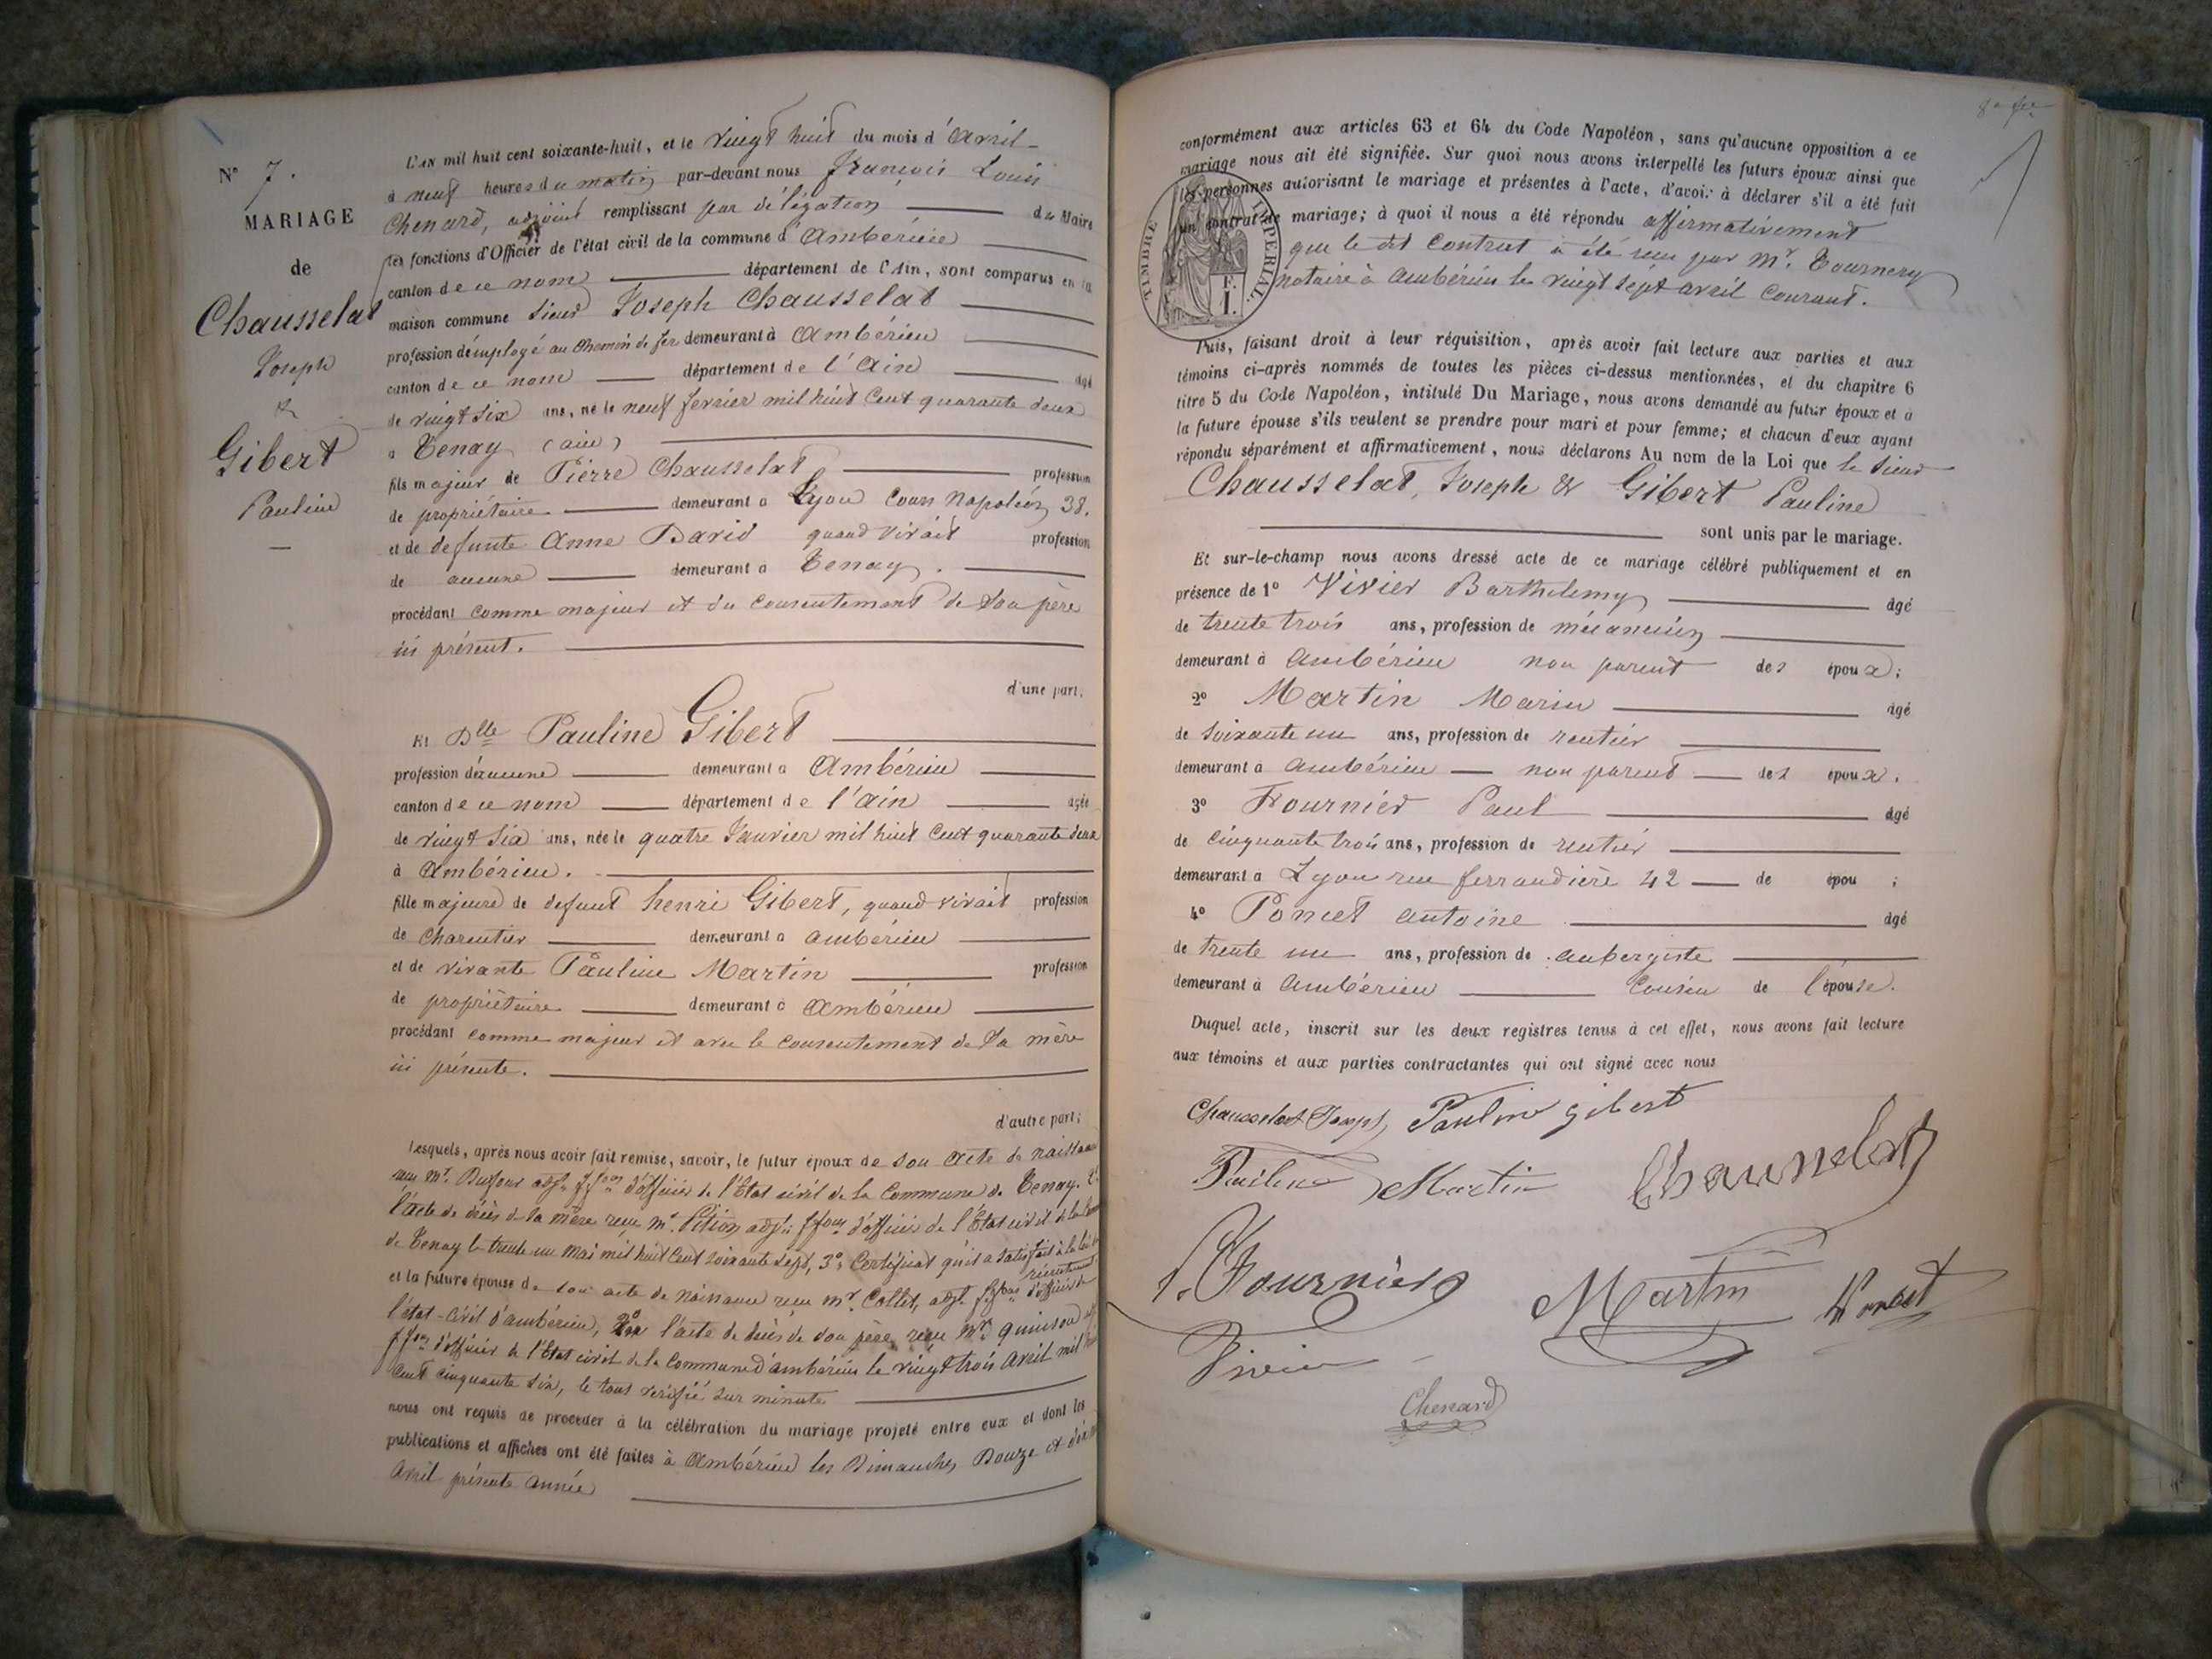 N° 7.
MARIAGE
de
Chausselat
Joseph
&
Gibert
Pauline
L'AN mil huit cent soixante-huit, et le vingt huit du mois d'Avril
à neuf heures du matin par-devant nous François Louis
Chenard, adjoint remplissant par délégation du Maire
les fonctions d'Officier de l'état civil de la commune d'Ambérieu
canton de ce nom département de l'Ain, sont comparus en la
maison commune Sieur Joseph Chausselat
profession d'employé au chemin de fer demeurant à Ambérieu
canton de ce nom département de l'Ain âgé
de vingt six ans, né le neuf fevrier mil huit cent quarante deux
à Tenay (ain)
fils majeur de Pierre Chausselat profession
de propriétaire demeurant à Lyon Cours Napoléon, 38.
et de defunte Anne David quand vivait profession
de aucune demeurant à Tenay.
procédant comme majeur et du consentement de son père
ici présent.
d'une part,
Et Dlle Pauline Gibert
profession d'aucune demeurant à Ambérieu
canton de ce nom département de l'Ain âgée
de vingt six ans, née le quatre Janvier mil huit cent quarante deux
à Ambérieu.
fille majeure de defunt henri Gibert, quand vivait profession
de Charcutier demeurant à ambérieu
et de vivante Pauline Martin profession
de propriétaire demeurant à Ambérieu
procédant comme majeur et avec le consentement de sa mère
ici présente.
d'autre part;
Lesquels, après nous avoir fait remise, savoir, le futur époux de son acte de naissance
reçu Mr. Dufour adjt. ffons d'officier de l'État civil de la Commune de Tenay. 2°
l'acte de décès de sa mère reçu Mr. adjt. ffons d'officier de l'État civil de la
de Tenay le trente un mai mil huit cent soixante sept, 3° Certificat qu'il a satisfait à la loi
recrutement
et la future épouse de son acte de naissance reçu Mr. Collet, adjt. ffons d'officier de
l'état-civil d'ambérieu, 2° l'acte de décès de son père reçu Mr. quinson
ffons d'officier de l'État civil de la Commune d'ambérieu le vingt trois avril mil huit
cent cinquante six, le tout verifié sur minute
nous ont requis de procéder à la célébration du mariage projeté entre eux et dont les
publications et affiches ont été faites à Ambérieu les Dimanches Douze et
avril présente année
conformément aux articles 63 et 64 du Code Napoléon, sans qu'aucune opposition à ce
mariage nous ait été signifiée. Sur quoi nous avons interpellé les futurs époux ainsi que
les personnes autorisant le mariage et présentes à l'acte, d'avoir à déclarer s'il a été fait
un contrat de mariage; à quoi il nous a été répondu affirmativement
que le dit Contrat a été reçu par Mr. Tournery
notaire à Ambérieu le vingt sept avril courant.
TIMBRE IMPERIAL
E.
I.
Puis, faisant droit à leur réquisition, après avoir fait lecture aux parties et aux
témoins ci-après nommés de toutes les pièces ci-dessus mentionnées, et du chapitre 6
titre 5 du Code Napoléon, intitulé Du Mariage, nous avons demandé au futur époux et à
la future épouse s'ils veulent se prendre pour mari et pour femme; et chacun d'eux ayant
répondu séparément et affirmativement, nous déclarons Au nom de la Loi que le Sieur
Chausselat, Joseph & Gibert Pauline
sont unis par le mariage.
Et sur-le-champ nous avons dressé acte de ce mariage célébré publiquement et en
présence de 1° Vivier Barthelemy âgé
de trente trois ans, profession de mécanicien
demeurant à Ambérieu non parent des époux;
2° Martin Marin âgé
de soixante un ans, profession de rentier
demeurant à Ambérieu non parent des époux.
3° Fournier Paul âgé
de cinquante trois ans, profession de rentier
demeurant à Lyon rue ferrandière 42 de épou ;
4° Poncet Antoine âgé
de trente un ans, profession de aubergiste
demeurant à Ambérieu Cousin de l'épouse.
Duquel acte, inscrit sur les deux registres tenus à cet effet, nous avons fait lecture
aux témoins et aux parties contractantes qui ont signé avec nous
Chausselat Joseph, Pauline gibert
Martin Chausselat
P. Fournier Martin Poncet
Vivier
Chenard